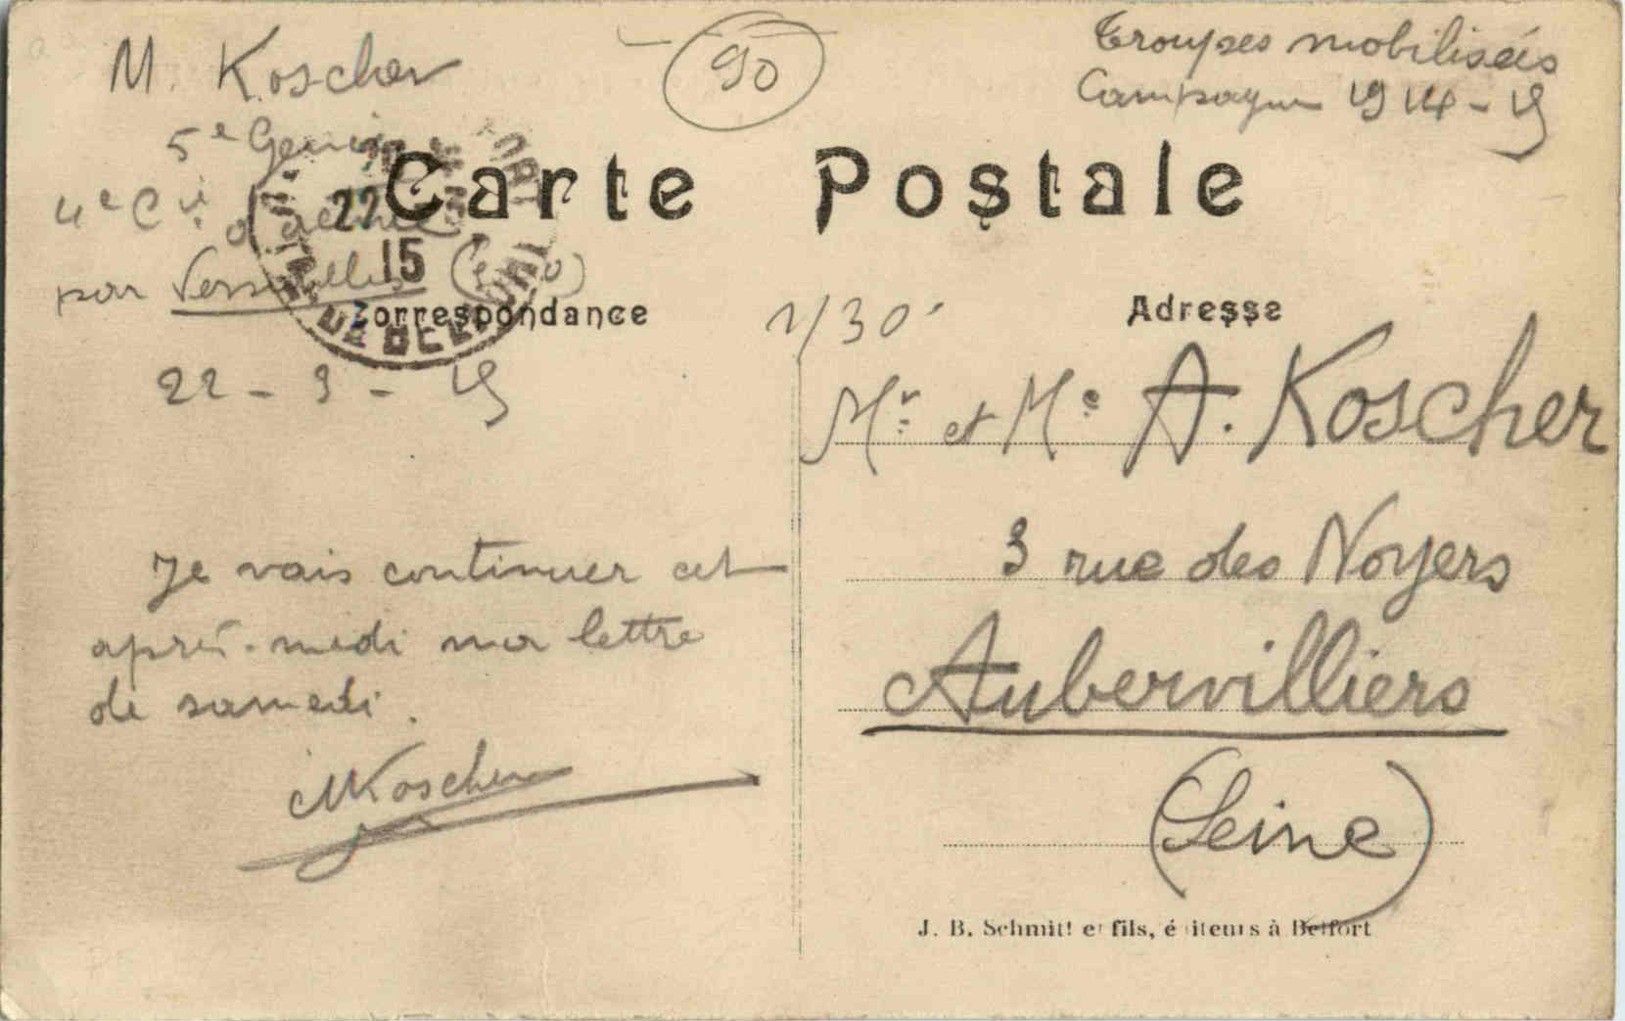 M. Koscher
90
Troupes mobilisées
Campagne 1914-15
5e Génie
4e Cie
22
15
Carte Postale
par Versailles
Correspondance
1/30
Adresse
22 - 3 - 15
Mr et Me A. Koscher
3 rue des Noyers
Aubervilliers
(Seine)
Je vais continuer cet
après-midi ma lettre
de samedi.
MKoscher
J. B. Schmitt et fils, éditeurs à Belfort